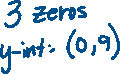 3 zeros
y-int: (0,9)